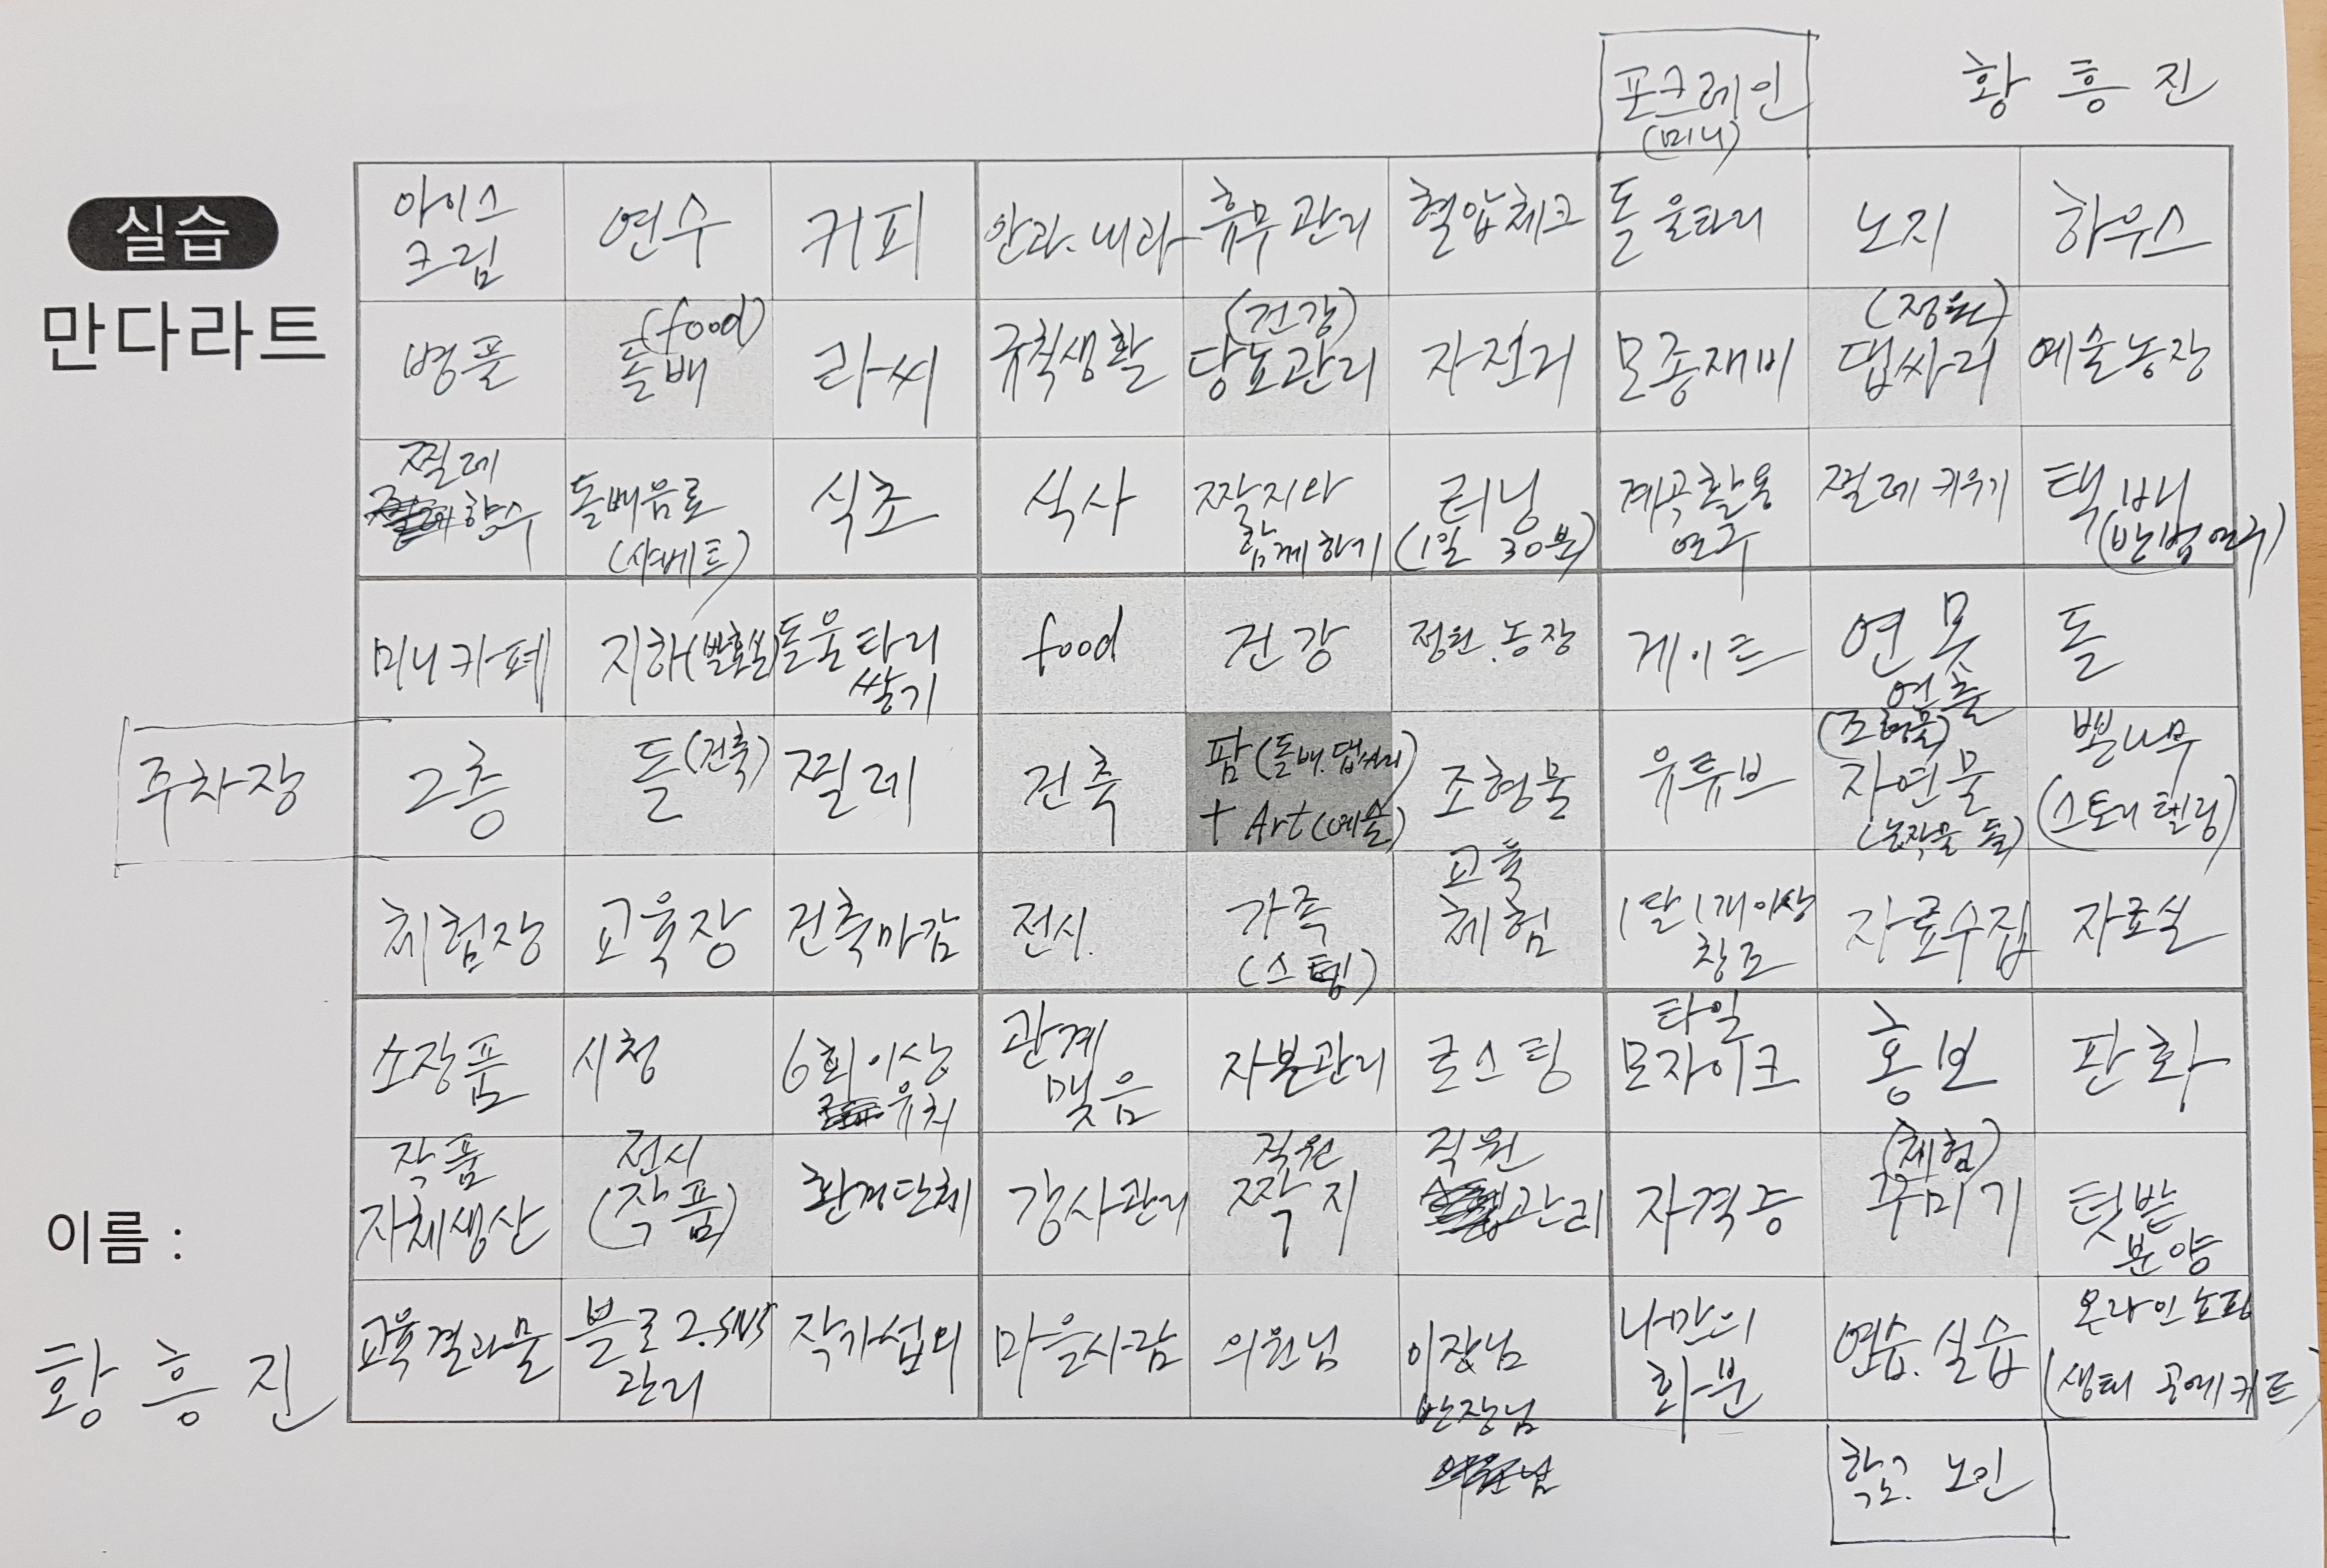 포크레인
(미니)
황흥진
실습
만다라트
아이스
크림
연수
커피
안과.내과
휴무관리
혈압체크
돌 울타리
노지
하우스
병풀
(food)
돌배
라씨
규칙생활
(건강)
당뇨관리
자전거
모종재비
(정원)
댑싸리
예술농장
찔레
향수
돌배음료
(샤베트)
식초
식사
짝지와
함께하기
러닝
(1일 30분)
계곡활용
연구
찔레 키우기
택배
(반법연구)
미니카페
지하(발효실)
돌울타리
쌓기
food
건강
정원.농장
게이트
연못
연출
돌
주차장
2층
돌(건축)
찔레
건축
팜(돌배.댑싸리)
+ Art(예술)
조형물
유튜브
(조형물)
자연물
(농작물 돌)
뽕나무
(스토리텔링)
체험장
교육장
건축마감
전시.
가족
(스텝)
교육
체험
1달 1개이상
창조
자료수집
자료실
소장품
시청
6회이상
유치
관계
맺음
자본관리
코스팅
타일
모자이크
홍보
판화
작품
자체생산
전시
(작품)
환경단체
강사관리
직원
짝지
직원
관리
자격증
(체험)
꾸미기
텃밭
분양
이름 :
황흥진
교육결과물
블로그.SNS
관리
작가섭외
마을사람
의원님
이장님
반장님
나만의
화분
연습.실습
온라인쇼핑
(생태 공예키트)
학교. 노인